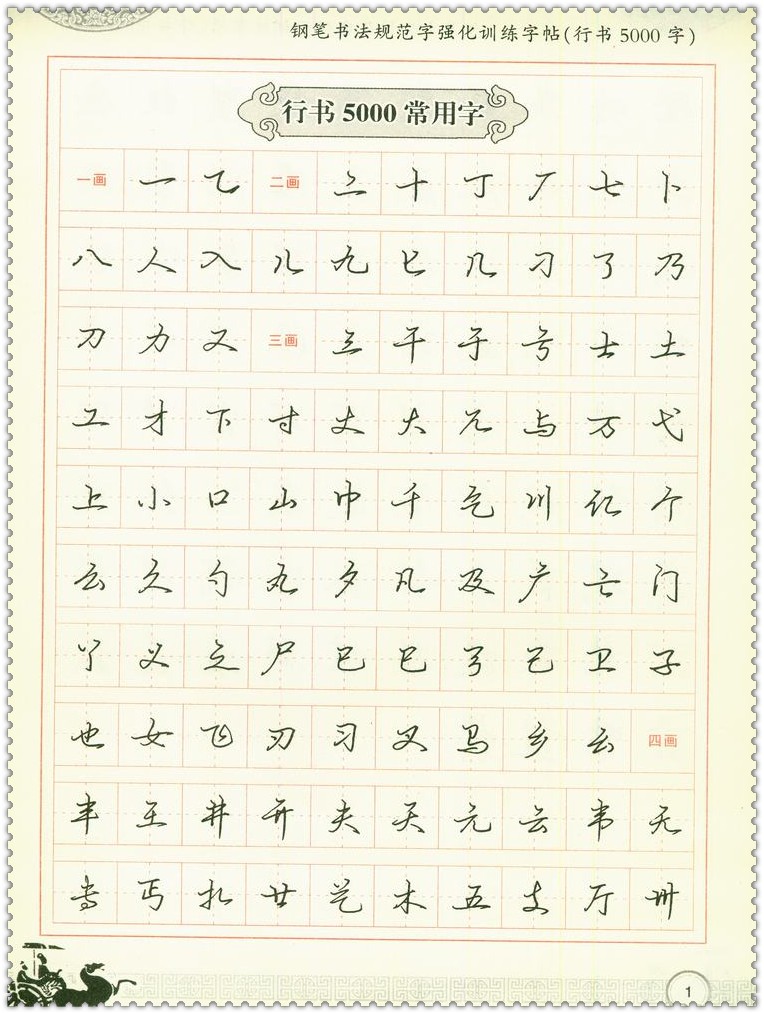 钢笔书法规范字强化训练字帖(行书 5000 字)
行书 5000 常用字
一画 一 乙 二画 二 十 丁 厂 七 卜
八 人 入 儿 九 匕 几 刁 了 乃
刀 力 又 三画 三 干 于 亏 士 土
工 才 下 寸 丈 大 兀 与 万 弋
上 小 口 山 巾 千 乞 川 亿 个
么 久 勺 丸 夕 凡 及 广 亡 门
丫 义 之 尸 已 巳 弓 己 卫 子
也 女 飞 刃 习 叉 马 乡 幺 四画
丰 王 井 开 夫 天 元 云 韦 无
专 丐 扎 廿 艺 木 五 支 厅 卅
1